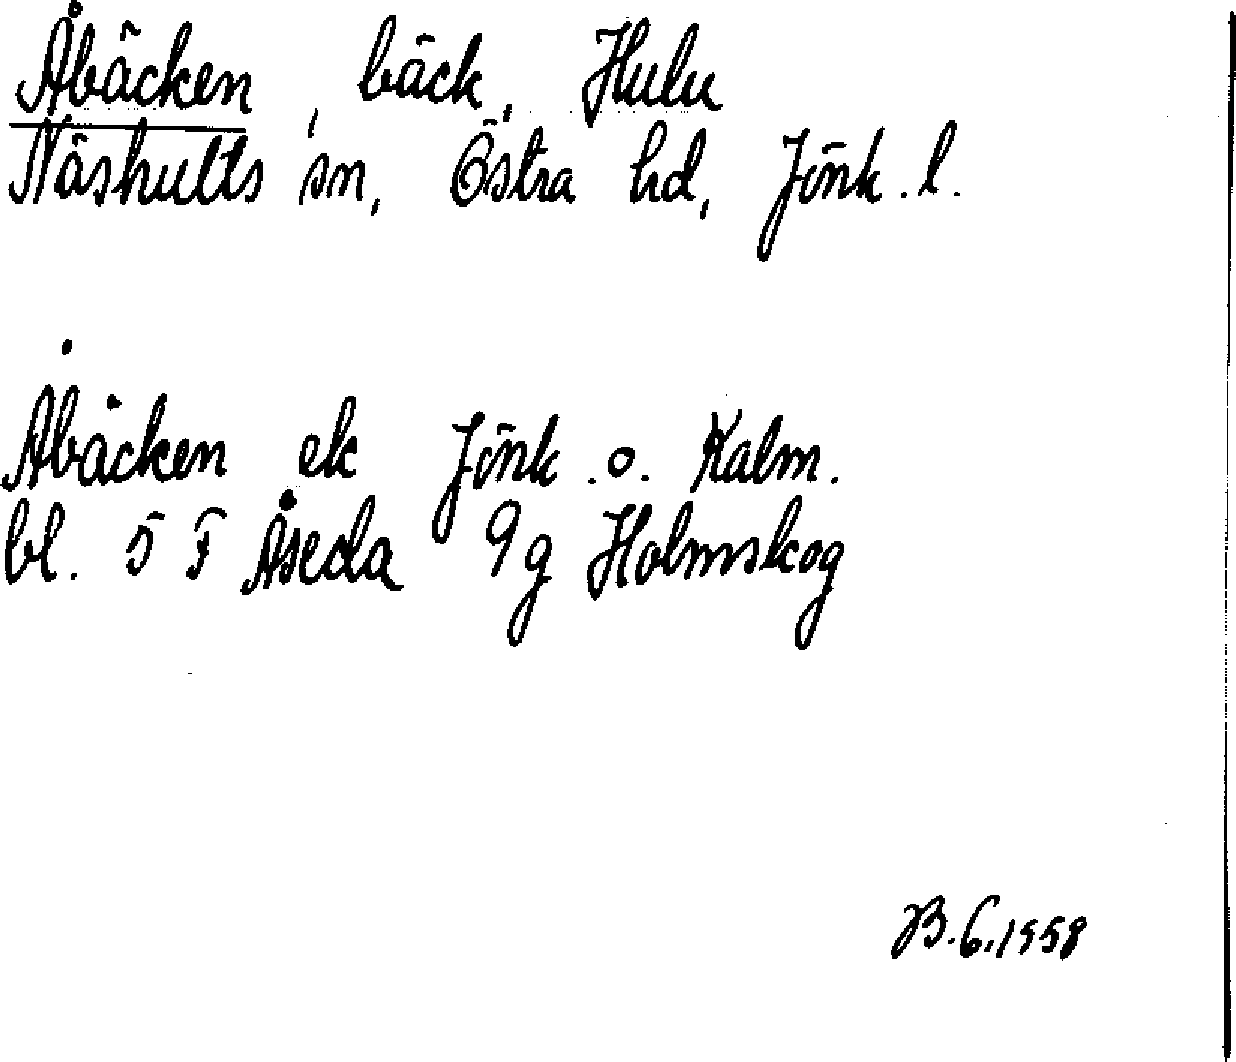 Åbäcken, bäck, Hulu
Näshults sn, Östra hd, Jönk. l.
Åbäcken ek Jönk. o. Kalm.
bl. 5 F Åseda 9g Holmskog
B.6.1958